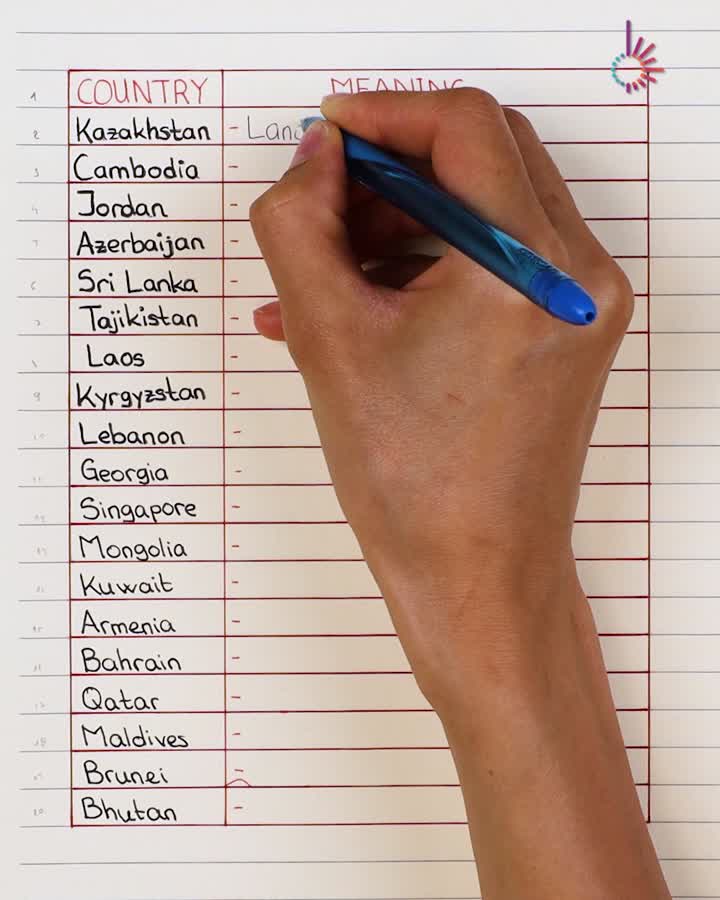 COUNTRY MEANING
1
2 Kazakhstan - Land
3 Cambodia -
4 Jordan -
Azerbaijan -
6 Sri Lanka -
7 Tajikistan -
Laos -
9 Kyrgyzstan -
10 Lebanon -
11 Georgia -
Singapore -
Mongolia -
Kuwait -
Armenia -
Bahrain -
17 Qatar -
18 Maldives -
Brunei -
20 Bhutan -